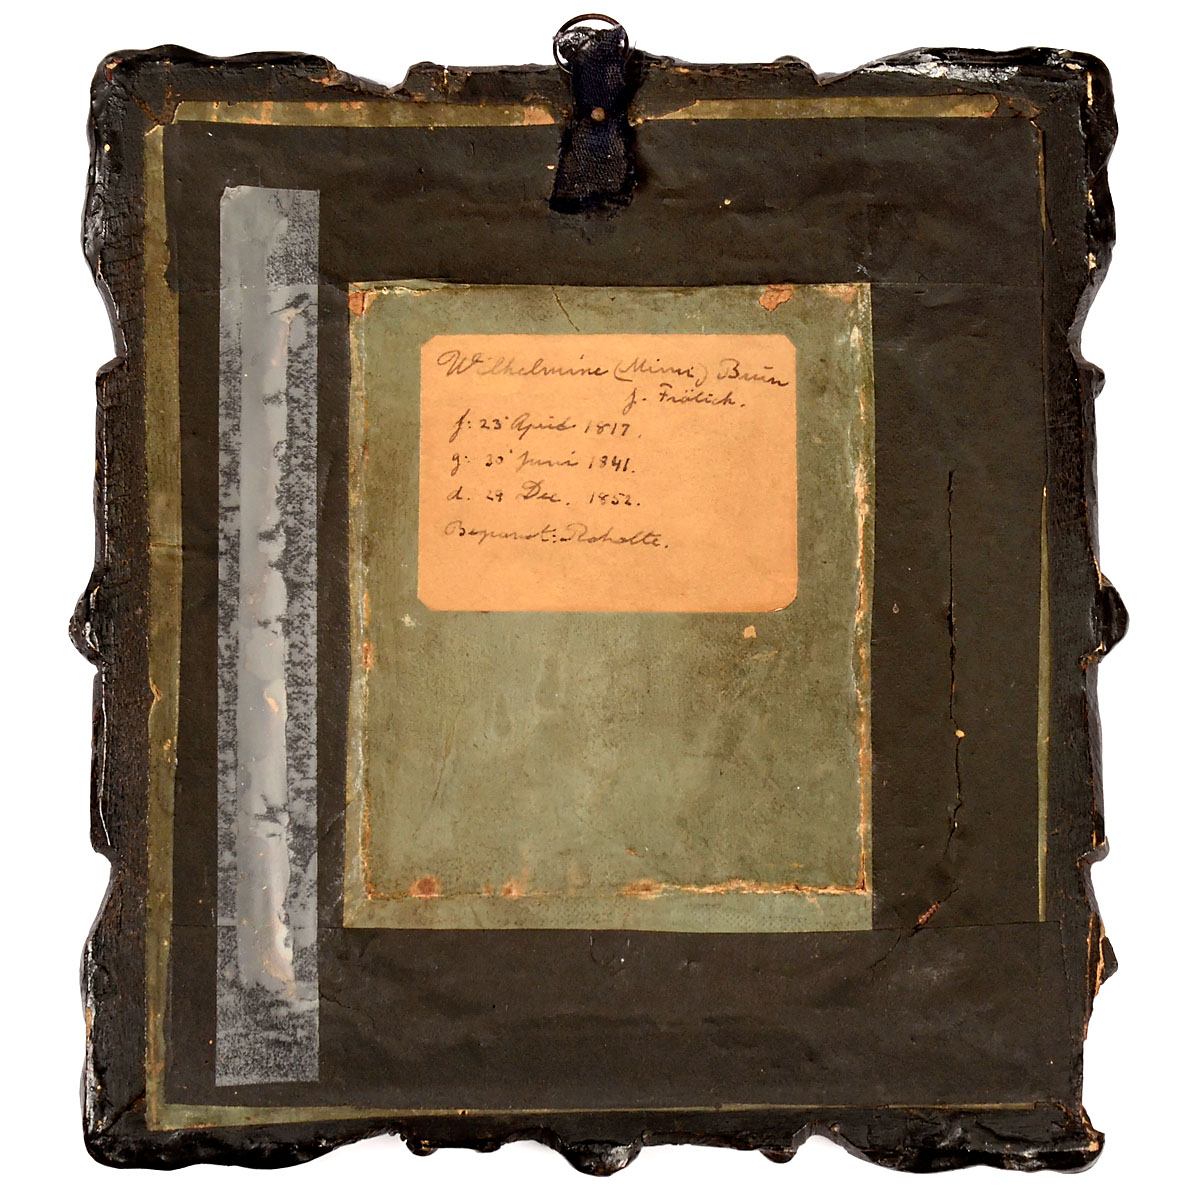 Wilhelmine (Mimi) Bruun
f. Frölich.
f: 23' April 1817.
g: 30' Juni 1841.
d. 29 Dec. 1852.
Roholte.